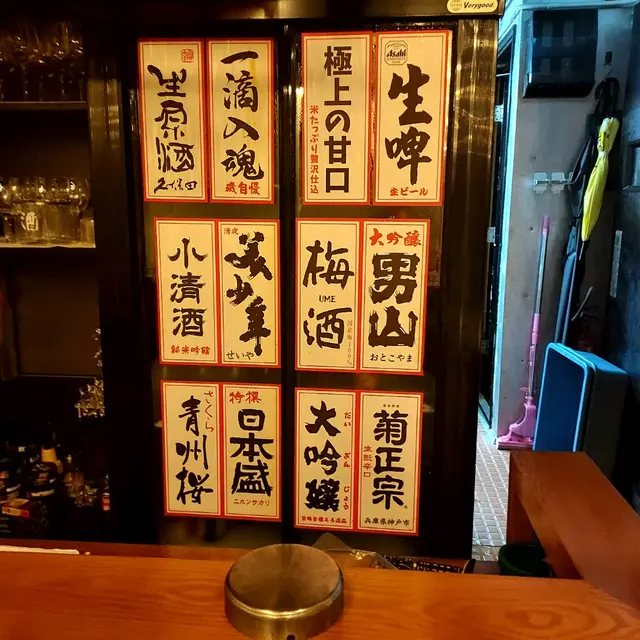 Verygood.
生原酒
久保田
一滴入魂
蔵自慢
極上の甘口
米たっぷり贅沢仕込
Asahi
生啤
生ビール
小清酒
純米吟醸
清夜
美少年
せいや
梅酒
UME
大吟醸
男山
おとこやま
さくら
青州桜
特撰
日本盛
ニホンサカリ
大吟醸
だいぎんじょう
菊正宗
生酛辛口
兵庫県神戸市
酒